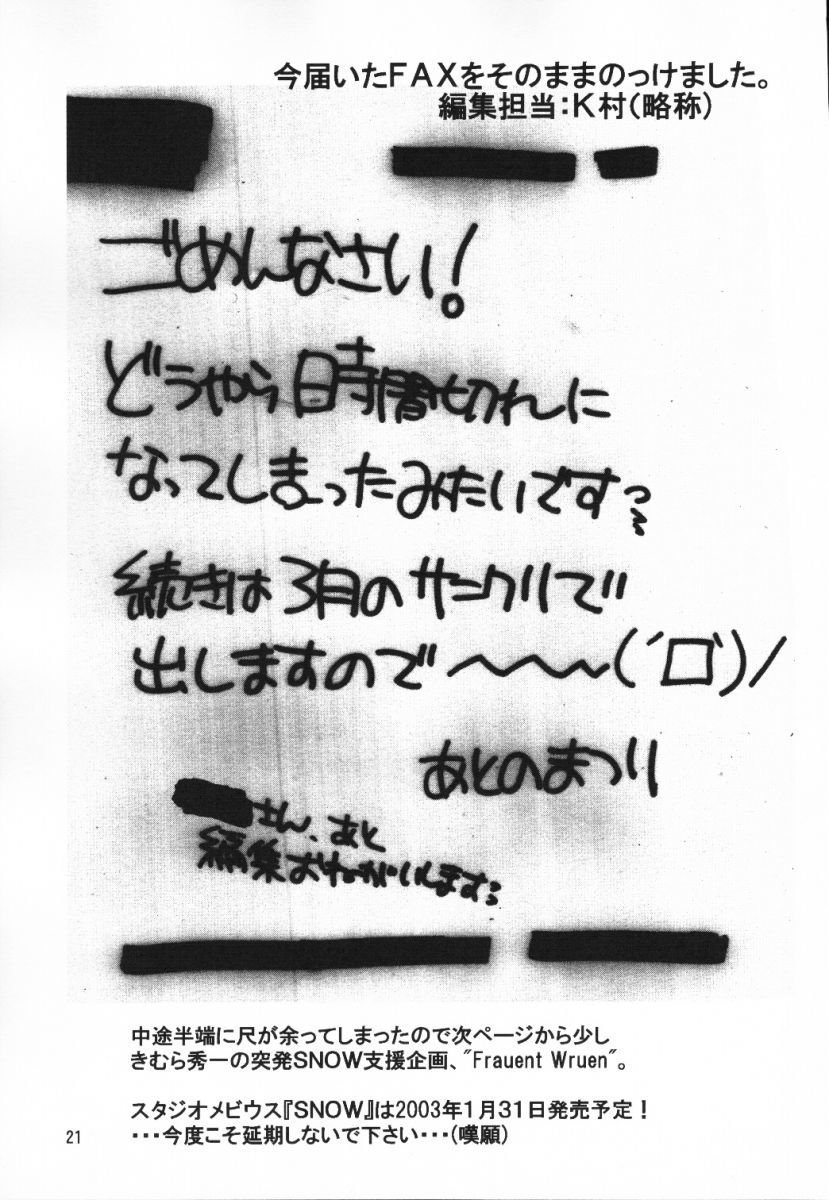 今届いたＦＡＸをそのままのっけました。
編集担当：Ｋ村（略称）
ごめんなさい!
どうやら時間切れに
なってしまったみたいです
続きは3月のサンクリで
出しますので〜〜〜(´ロ`)/
あとのまつり
さん、あと
編集おねがいします
中途半端に尺が余ってしまったので次ページから少し
きむら秀一の突発SNOW支援企画、"Frauent Wruen"。
スタジオメビウス『SNOW』は2003年１月３１日発売予定！
・・・今度こそ延期しないで下さい・・・(嘆願)
21